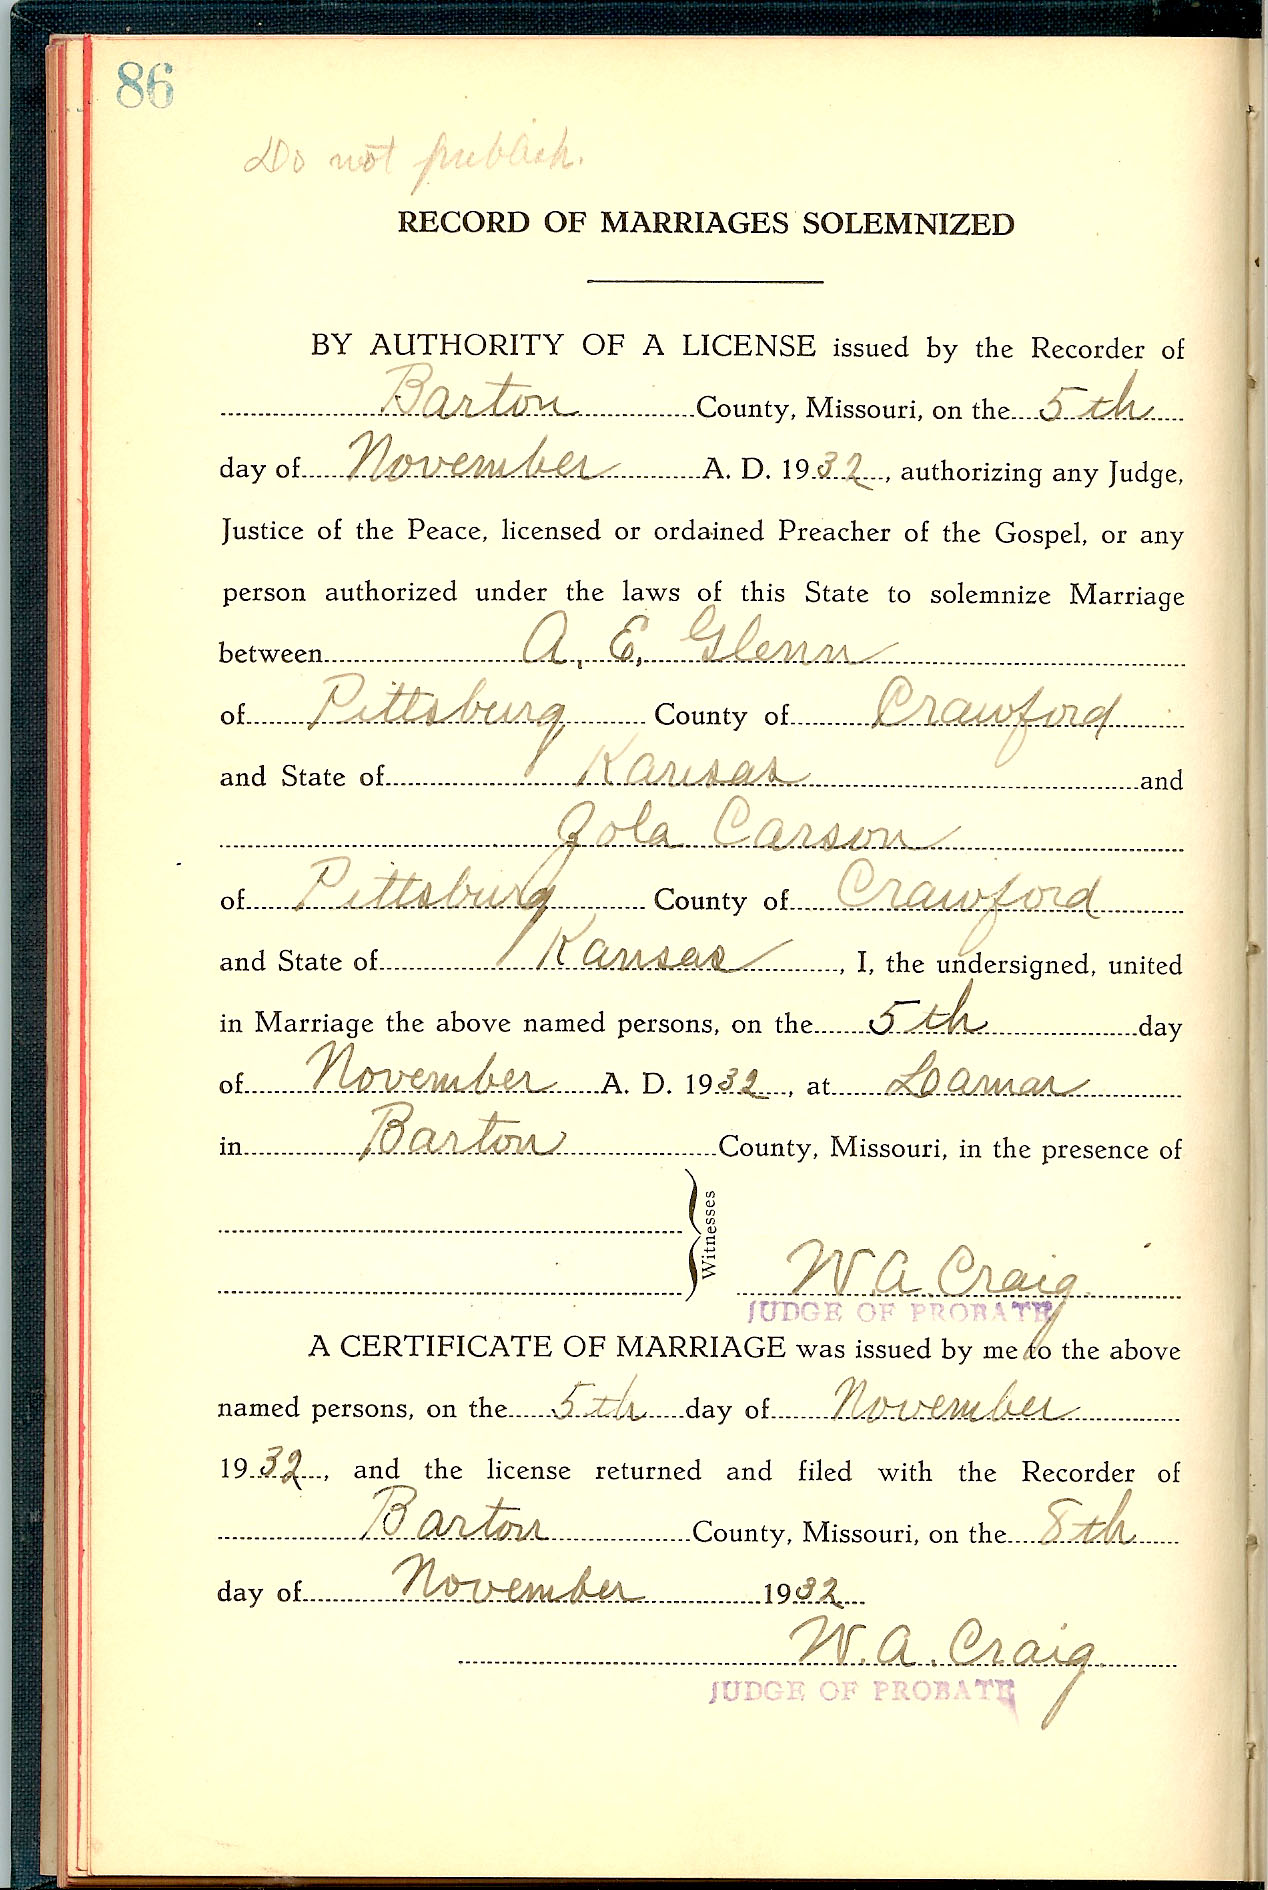 86
Do not publish.
RECORD OF MARRIAGES SOLEMNIZED
BY AUTHORITY OF A LICENSE issued by the Recorder of
Barton County, Missouri, on the 5th
day of November A. D. 1932, authorizing any Judge,
Justice of the Peace, licensed or ordained Preacher of the Gospel, or any
person authorized under the laws of this State to solemnize Marriage
between A. E. Glenn
of Pittsburg County of Crawford
and State of Kansas and
Zola Carson
of Pittsburg County of Crawford
and State of Kansas, I, the undersigned, united
in Marriage the above named persons, on the 5th day
of November A. D. 1932, at Lamar
in Barton County, Missouri, in the presence of
Witnesses
W. A. Craig
JUDGE OF PROBATE
A CERTIFICATE OF MARRIAGE was issued by me to the above
named persons, on the 5th day of November
1932, and the license returned and filed with the Recorder of
Barton County, Missouri, on the 8th
day of November 1932
W. A. Craig
JUDGE OF PROBATE